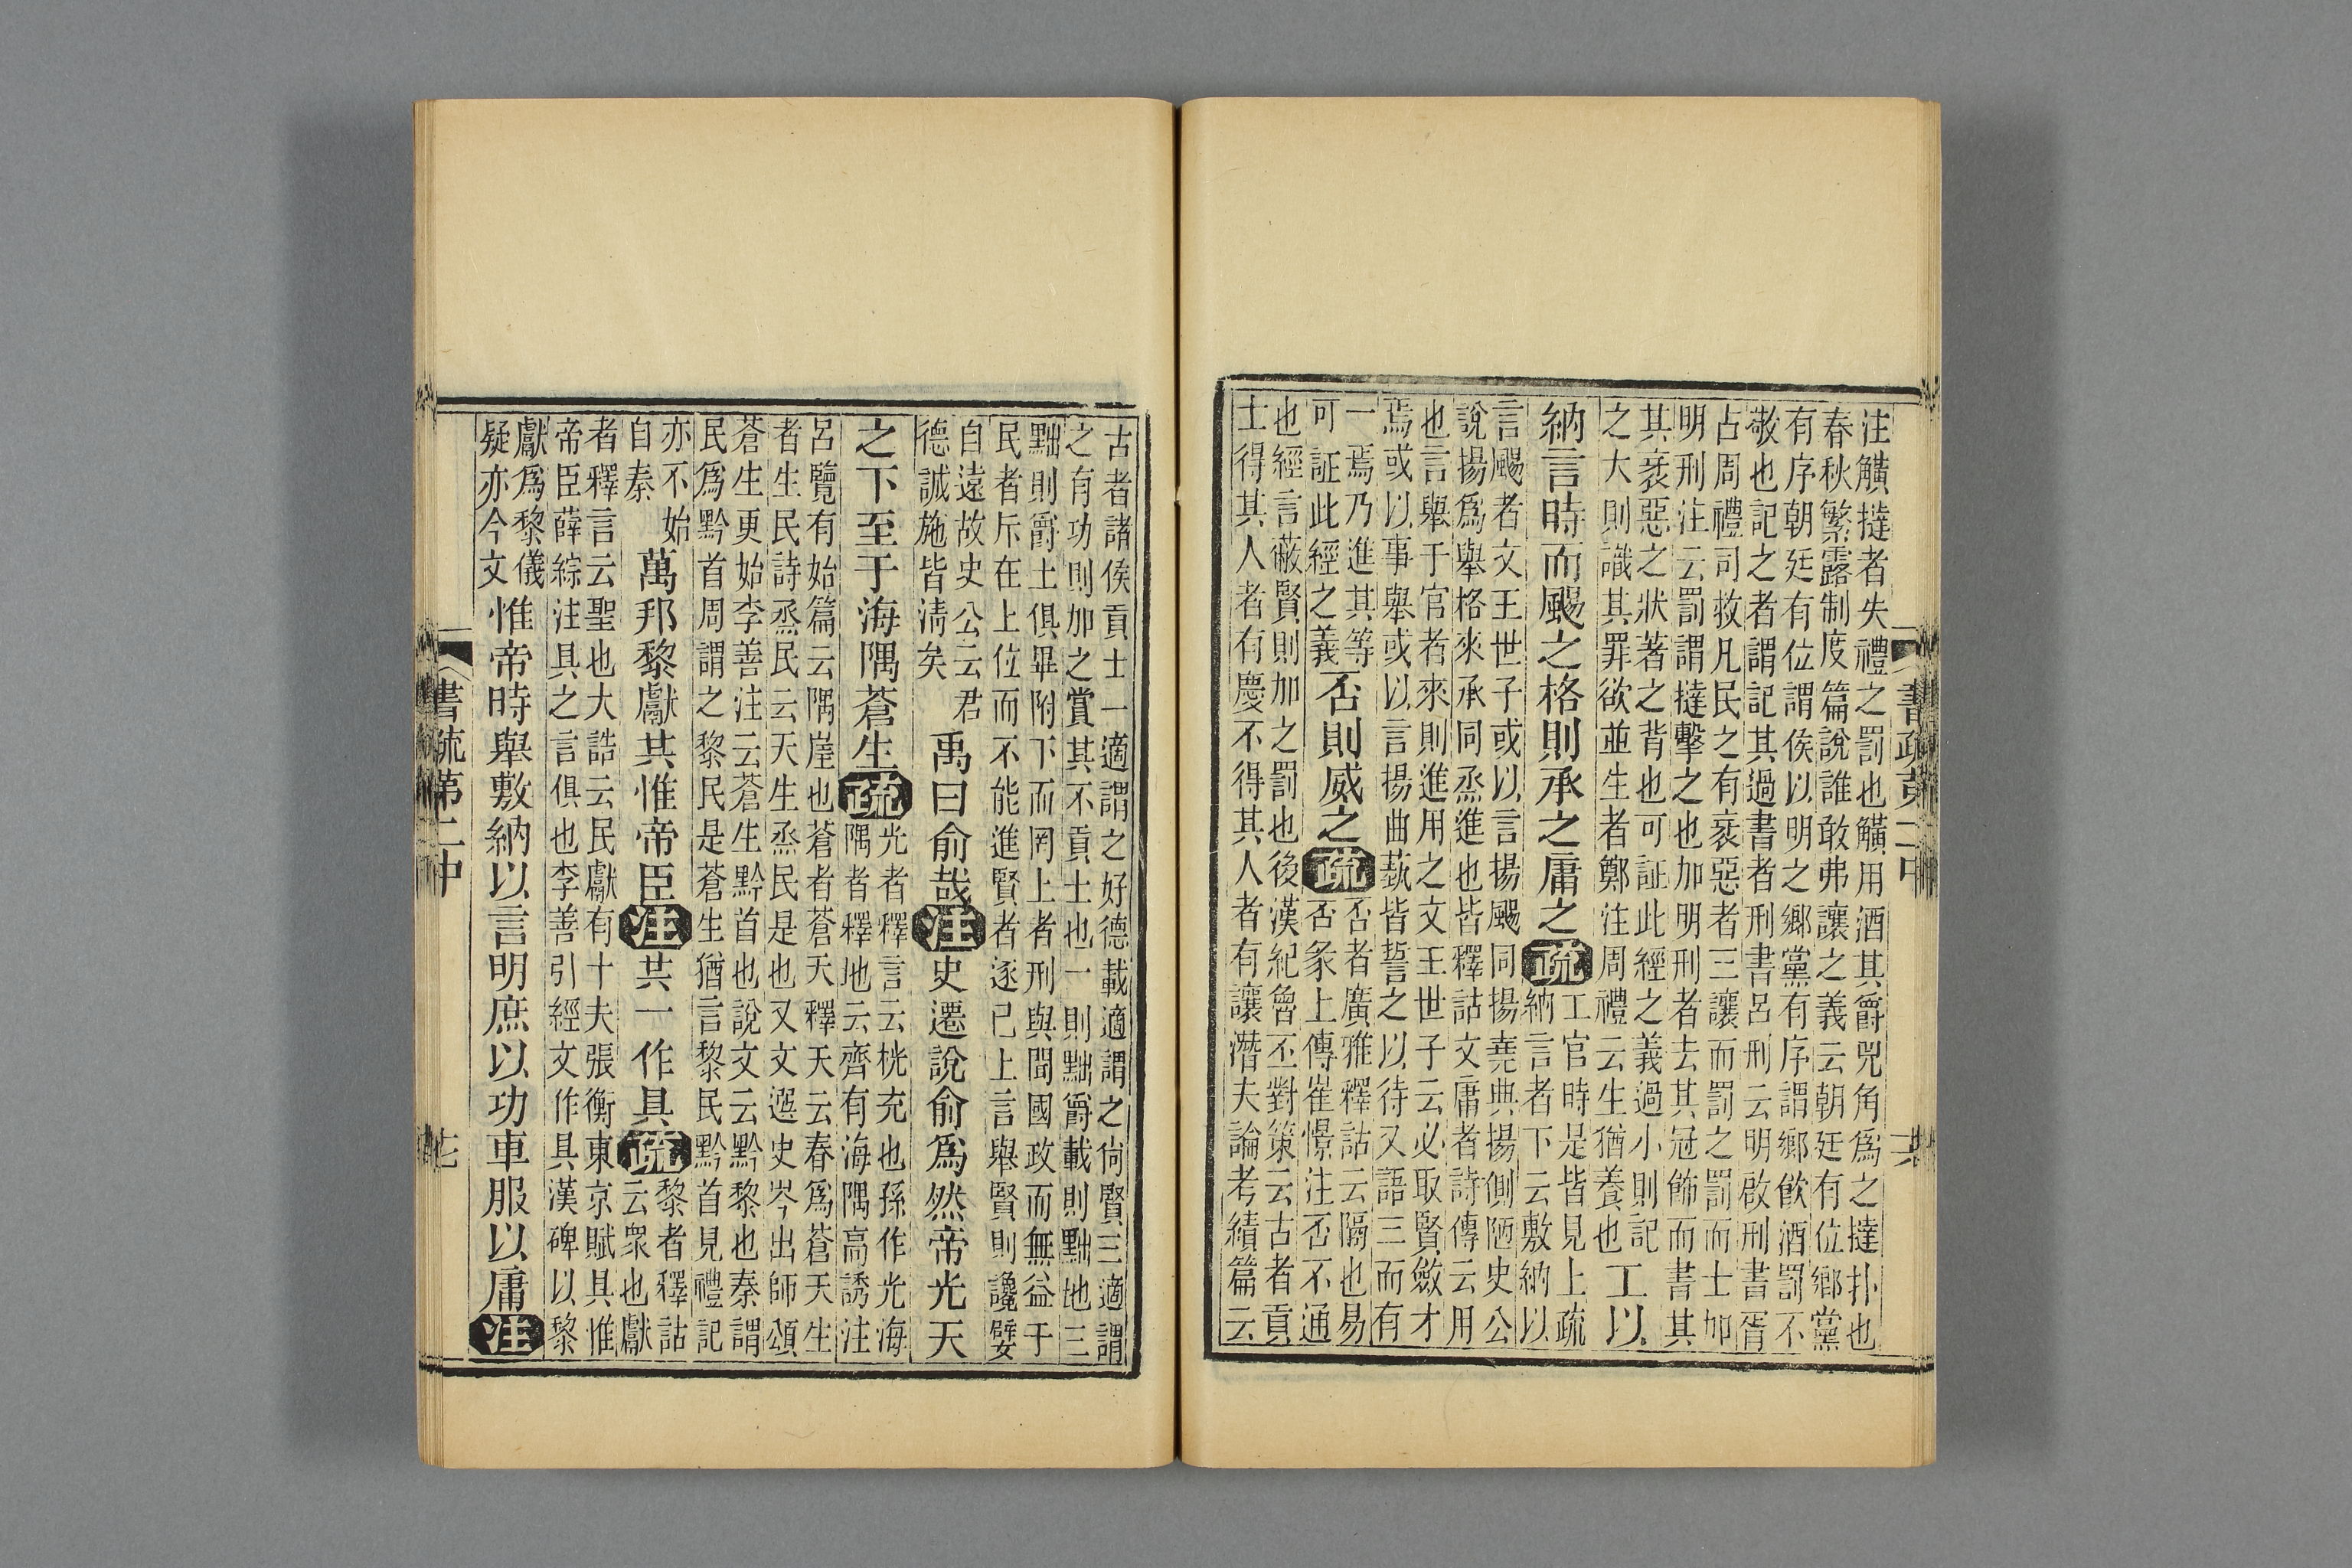 注觵撻者失禮之罰也觵用酒其爵兕角爲之撻扑也
春秋繁露制度篇說誰敢弗讓之義云朝廷有位鄉黨
有序朝廷有位謂侯以明之鄉黨有序謂鄉飲酒罰不
敬也記之者謂記其過書者刑書呂刑云明啟刑書胥
占周禮司救凡民之有衺惡者三讓而罰之罰而士加
明刑注云罰謂撻擊之也加明刑者去其冠飾而書其
其衺惡之狀著之背也可証此經之義過小則記
之大則識其罪欲並生者鄭注周禮云生猶養也
工以
納言時而颺之格則承之庸之疏
工官時是皆見上疏
納言者下云敷納以
言颺者文王世子或以言揚颺同揚堯典揚側陋史公
說揚爲舉格來承同烝進也皆釋詁文庸者詩傳云用
也言舉于官者來則進用之文王世子云必取賢斂才
焉或以事舉或以言揚曲蓺皆誓之以待又語三而有
一焉乃進其等
可証此經之義
否則威之疏
否者廣雅釋詁云隔也易
否彖上傳崔憬注否不通
也經言蔽賢則加之罰也後漢紀魯丕對策云古者貢
士得其人者有慶不得其人者有讓潛夫論考績篇云
書疏第二中
古者諸侯貢士一適謂之好德載適謂之尚賢三適謂
之有功則加之賞其不貢士也一則黜爵載則黜地三
黜則爵土俱畢附下而罔上者刑與聞國政而無益于
民者斥在上位而不能進賢者逐已上言舉賢則讒嬖
自遠故史公云君
德誠施皆淸矣
禹曰俞哉注史遷說俞爲然帝光天
之下至于海隅蒼生疏
光者釋言云桄充也孫作光海
隅者釋地云齊有海隅高誘注
呂覽有始篇云隅崖也蒼者蒼天釋天云春爲蒼天生
者生民詩烝民云天生烝民是也又文選史岑出師頌
蒼生更始李善注云蒼生黔首也說文云黔黎也秦謂
民爲黔首周謂之黎民是蒼生猶言黎民黔首見禮記
亦不始
自秦
萬邦黎獻其惟帝臣注共一作具疏
黎者釋詁
云衆也獻
者釋言云聖也大誥云民獻有十夫張衡東京賦具惟
帝臣薛綜注具之言俱也李善引經文作具漢碑以黎
獻爲黎儀
疑亦今文
惟帝時舉敷納以言明庶以功車服以庸注
書疏第二中